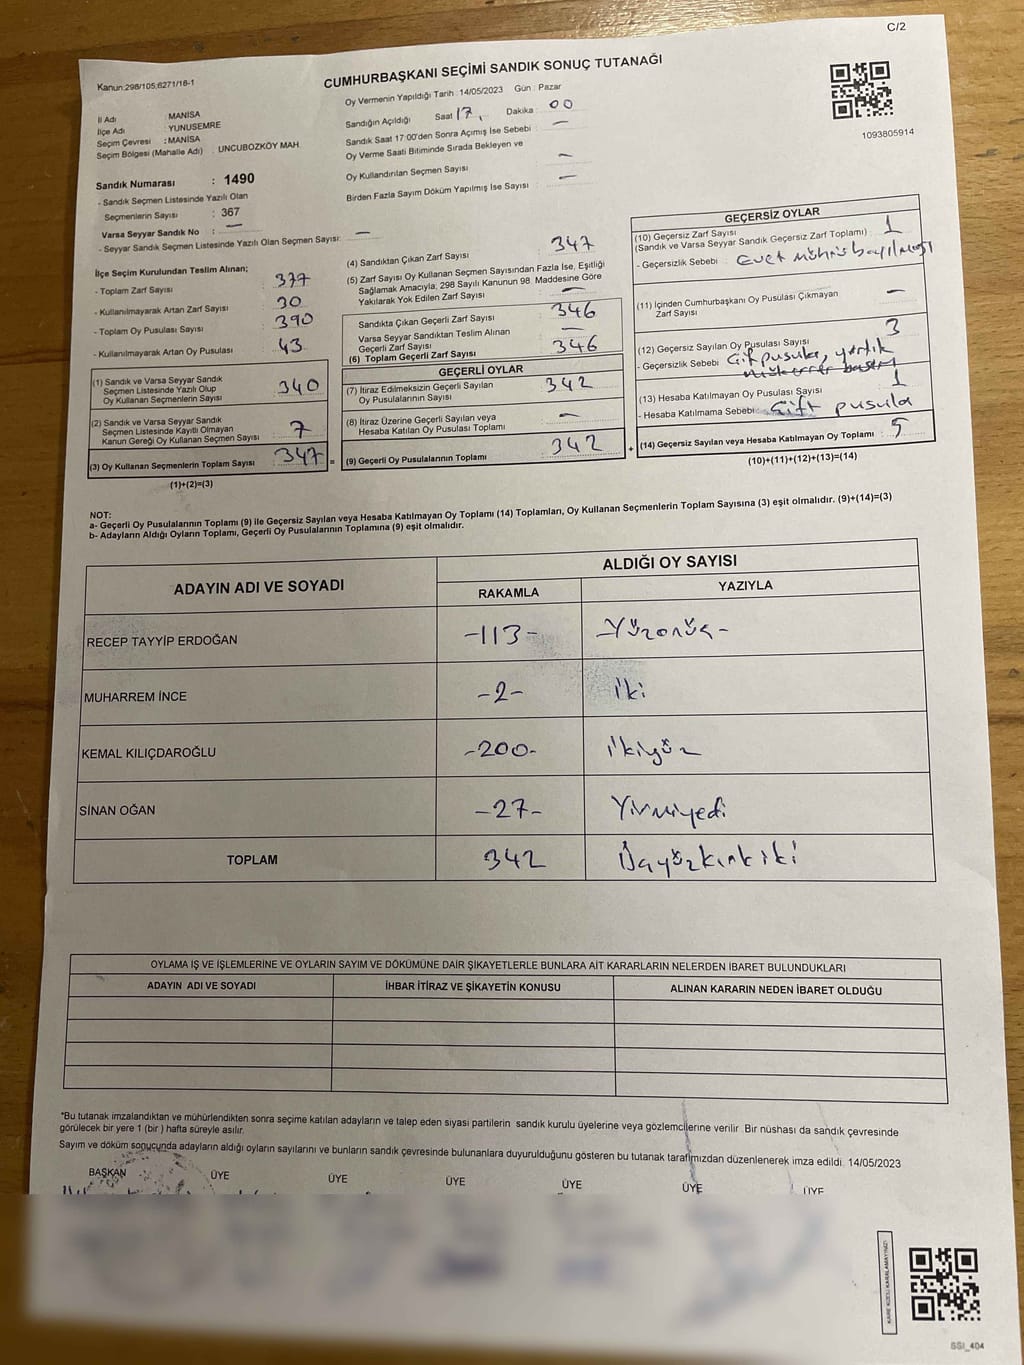 C/2
Kanun:298/105;6271/16-1
CUMHURBAŞKANI SEÇİMİ SANDIK SONUÇ TUTANAĞI
İl Adı : MANİSA
İlçe Adı : YUNUSEMRE
Seçim Çevresi : MANİSA
Seçim Bölgesi (Mahalle Adı) : UNCUBOZKÖY MAH.
Sandık Numarası : 1490
- Sandık Seçmen Listesinde Yazılı Olan
Seçmenlerin Sayısı : 367
Varsa Seyyar Sandık No : —
- Seyyar Sandık Seçmen Listesinde Yazılı Olan Seçmen Sayısı: —
Oy Vermenin Yapıldığı Tarih : 14/05/2023 Gün : Pazar
Sandığın Açıldığı Saat 17 Dakika : 00
Sandık Saat 17:00'den Sonra Açımış İse Sebebi : —
Oy Verme Saati Bitiminde Sırada Bekleyen ve
Oy Kullandırılan Seçmen Sayısı : —
Birden Fazla Sayım Döküm Yapılmış İse Sayısı : —
1093805914
İlçe Seçim Kurulundan Teslim Alınan;
- Toplam Zarf Sayısı : 377
- Kullanılmayarak Artan Zarf Sayısı : 30
- Toplam Oy Pusulası Sayısı : 390
- Kullanılmayarak Artan Oy Pusulası : 43
(1) Sandık ve Varsa Seyyar Sandık
Seçmen Listesinde Yazılı Olup
Oy Kullanan Seçmenlerin Sayısı : 340
(2) Sandık ve Varsa Seyyar Sandık
Seçmen Listesinde Kayıtlı Olmayan
Kanun Gereği Oy Kullanan Seçmen Sayısı : 7
(3) Oy Kullanan Seçmenlerin Toplam Sayısı : 347 =
(1)+(2)=(3)
(4) Sandıktan Çıkan Zarf Sayısı : 347
(5) Zarf Sayısı Oy Kullanan Seçmen Sayısından Fazla İse, Eşitliği
Sağlamak Amacıyla, 298 Sayılı Kanunun 98. Maddesine Göre
Yakılarak Yok Edilen Zarf Sayısı : —
Sandıkta Çıkan Geçerli Zarf Sayısı : 346
Varsa Seyyar Sandıktan Teslim Alınan
Geçerli Zarf Sayısı : —
(6) Toplam Geçerli Zarf Sayısı : 346
GEÇERLİ OYLAR
(7) İtiraz Edilmeksizin Geçerli Sayılan
Oy Pusulasının Sayısı : 342
(8) İtiraz Üzerine Geçerli Sayılan veya
Hesaba Katılan Oy Pusulası Toplamı : —
(9) Geçerli Oy Pusulalarının Toplamı : 342 +
GEÇERSİZ OYLAR
(10) Geçersiz Zarf Sayısı
(Sandık ve Varsa Seyyar Sandık Geçersiz Zarf Toplamı) : 1
- Geçersizlik Sebebi : Evet Mührü basılması
(11) İçinden Cumhurbaşkanı Oy Pusulası Çıkmayan
Zarf Sayısı : —
(12) Geçersiz Sayılan Oy Pusulası Sayısı : 3
- Geçersizlik Sebebi : Çift pusula, yırtık
(13) Hesaba Katılmayan Oy Pusulası Sayısı : 1
- Hesaba Katılmama Sebebi : Çift pusula
(14) Geçersiz Sayılan veya Hesaba Katılmayan Oy Toplamı : 5
(10)+(11)+(12)+(13)=(14)
NOT:
a- Geçerli Oy Pusulalarının Toplamı (9) ile Geçersiz Sayılan veya Hesaba Katılmayan Oy Toplamı (14) Toplamları, Oy Kullanan Seçmenlerin Toplam Sayısına (3) eşit olmalıdır. (9)+(14)=(3)
b- Adayların Aldığı Oyların Toplamı, Geçerli Oy Pusulalarının Toplamına (9) eşit olmalıdır.
ADAYIN ADI VE SOYADI
ALDIĞI OY SAYISI
RAKAMLA YAZIYLA
RECEP TAYYİP ERDOĞAN -113- -Yüzonüç-
MUHARREM İNCE -2- İki
KEMAL KILIÇDAROĞLU -200- İkiyüz
SİNAN OĞAN -27- Yirmiyedi
TOPLAM 342 Üçyüzkırkiki
OYLAMA İŞ VE İŞLEMLERİNE VE OYLARIN SAYIM VE DÖKÜMÜNE DAİR ŞİKAYETLERLE BUNLARA AİT KARARLARIN NELERDEN İBARET BULUNDUKLARI
ADAYIN ADI VE SOYADI İHBAR İTİRAZ VE ŞİKAYETİN KONUSU ALINAN KARARIN NEDEN İBARET OLDUĞU
*Bu tutanak imzalandıktan ve mühürlendikten sonra seçime katılan adayların ve talep eden siyasi partilerin sandık kurulu üyelerine veya gözlemcilerine verilir. Bir nüshası da sandık çevresinde
görülecek bir yere 1 (bir ) hafta süreyle asılır.
Sayım ve döküm sonucunda adayların aldığı oyların sayılarını ve bunların sandık çevresinde bulunanlara duyurulduğunu gösteren bu tutanak tarafımızdan düzenlenerek imza edildi. 14/05/2023
BAŞKAN ÜYE ÜYE ÜYE ÜYE ÜYE ÜYE
KARE KODU KARALAMAYINIZ!
SSI_404